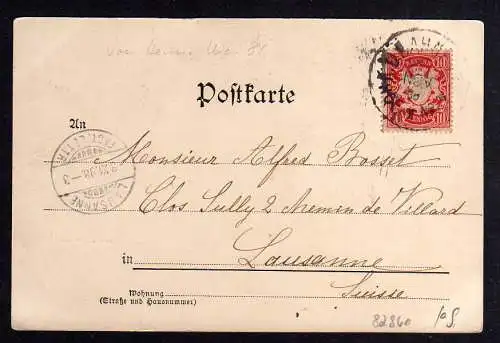 von
Postkarte
BAYERN
10 10
PFENNIG
An
Monsieur Alfred Bosset
Clos Sully 2 Chemin de Villard
LAUSANNE
in Lausanne
Suisse
Wohnung
(Straße und Hausnummer)
82860